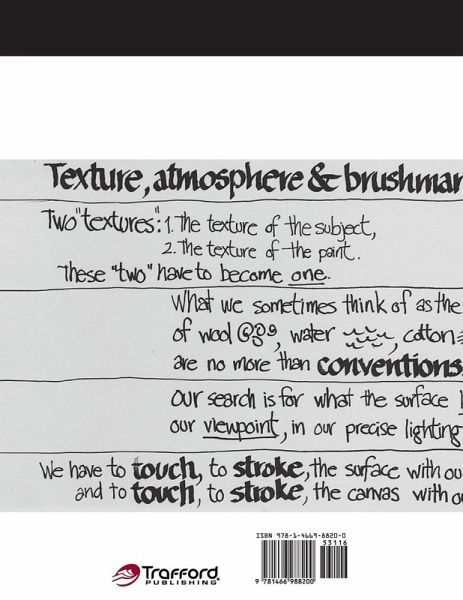 Texture, atmosphere & brushmar
Two "textures": 1. The texture of the subject,
2. The texture of the paint.
These "two" have to become one.
What we sometimes think of as the
of wool, water, cotton
are no more than conventions
Our search is for what the surface
our viewpoint, in our precise lighting
We have to touch, to stroke, the surface with ou
and to touch, to stroke, the canvas with ou
ISBN 978-1-4669-8820-0
53116
9 781466 988200
Trafford
PUBLISHING